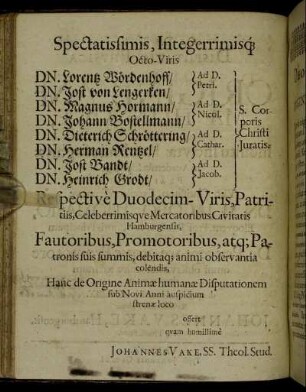 Spectatissimis, Integerrimisq;
Octo-Viris
DN. Lorentz Wördenhoff/ Ad D.
DN. Jost von Lengerken/ Petri.
DN. Magnus Hormann/ Ad D.
DN. Johann Bostellmann/ Nicol.
DN. Dieterich Schröttering/ Ad D.
DN. Herman Rentzel/ Cathar.
DN. Jost Bandt/ Ad D.
DN. Heinrich Grodt/ Jacob.
S. Cor
poris
Christi
Juratis.
Respectivè Duodecim-Viris, Patri-
tiis, Celeberrimisqve Mercatoribus Civitatis
Hamburgensis,
Fautoribus, Promotoribus, atq; Pa-
tronis suis summis, debitaq; animi observantia
colendis,
Hanc de Origine Animæ humanæ Disputationem
sub Novi Anni auspicium
strenæ loco
offert
qvam humillimè
JOHANNES VAKE. SS. Theol. Stud.